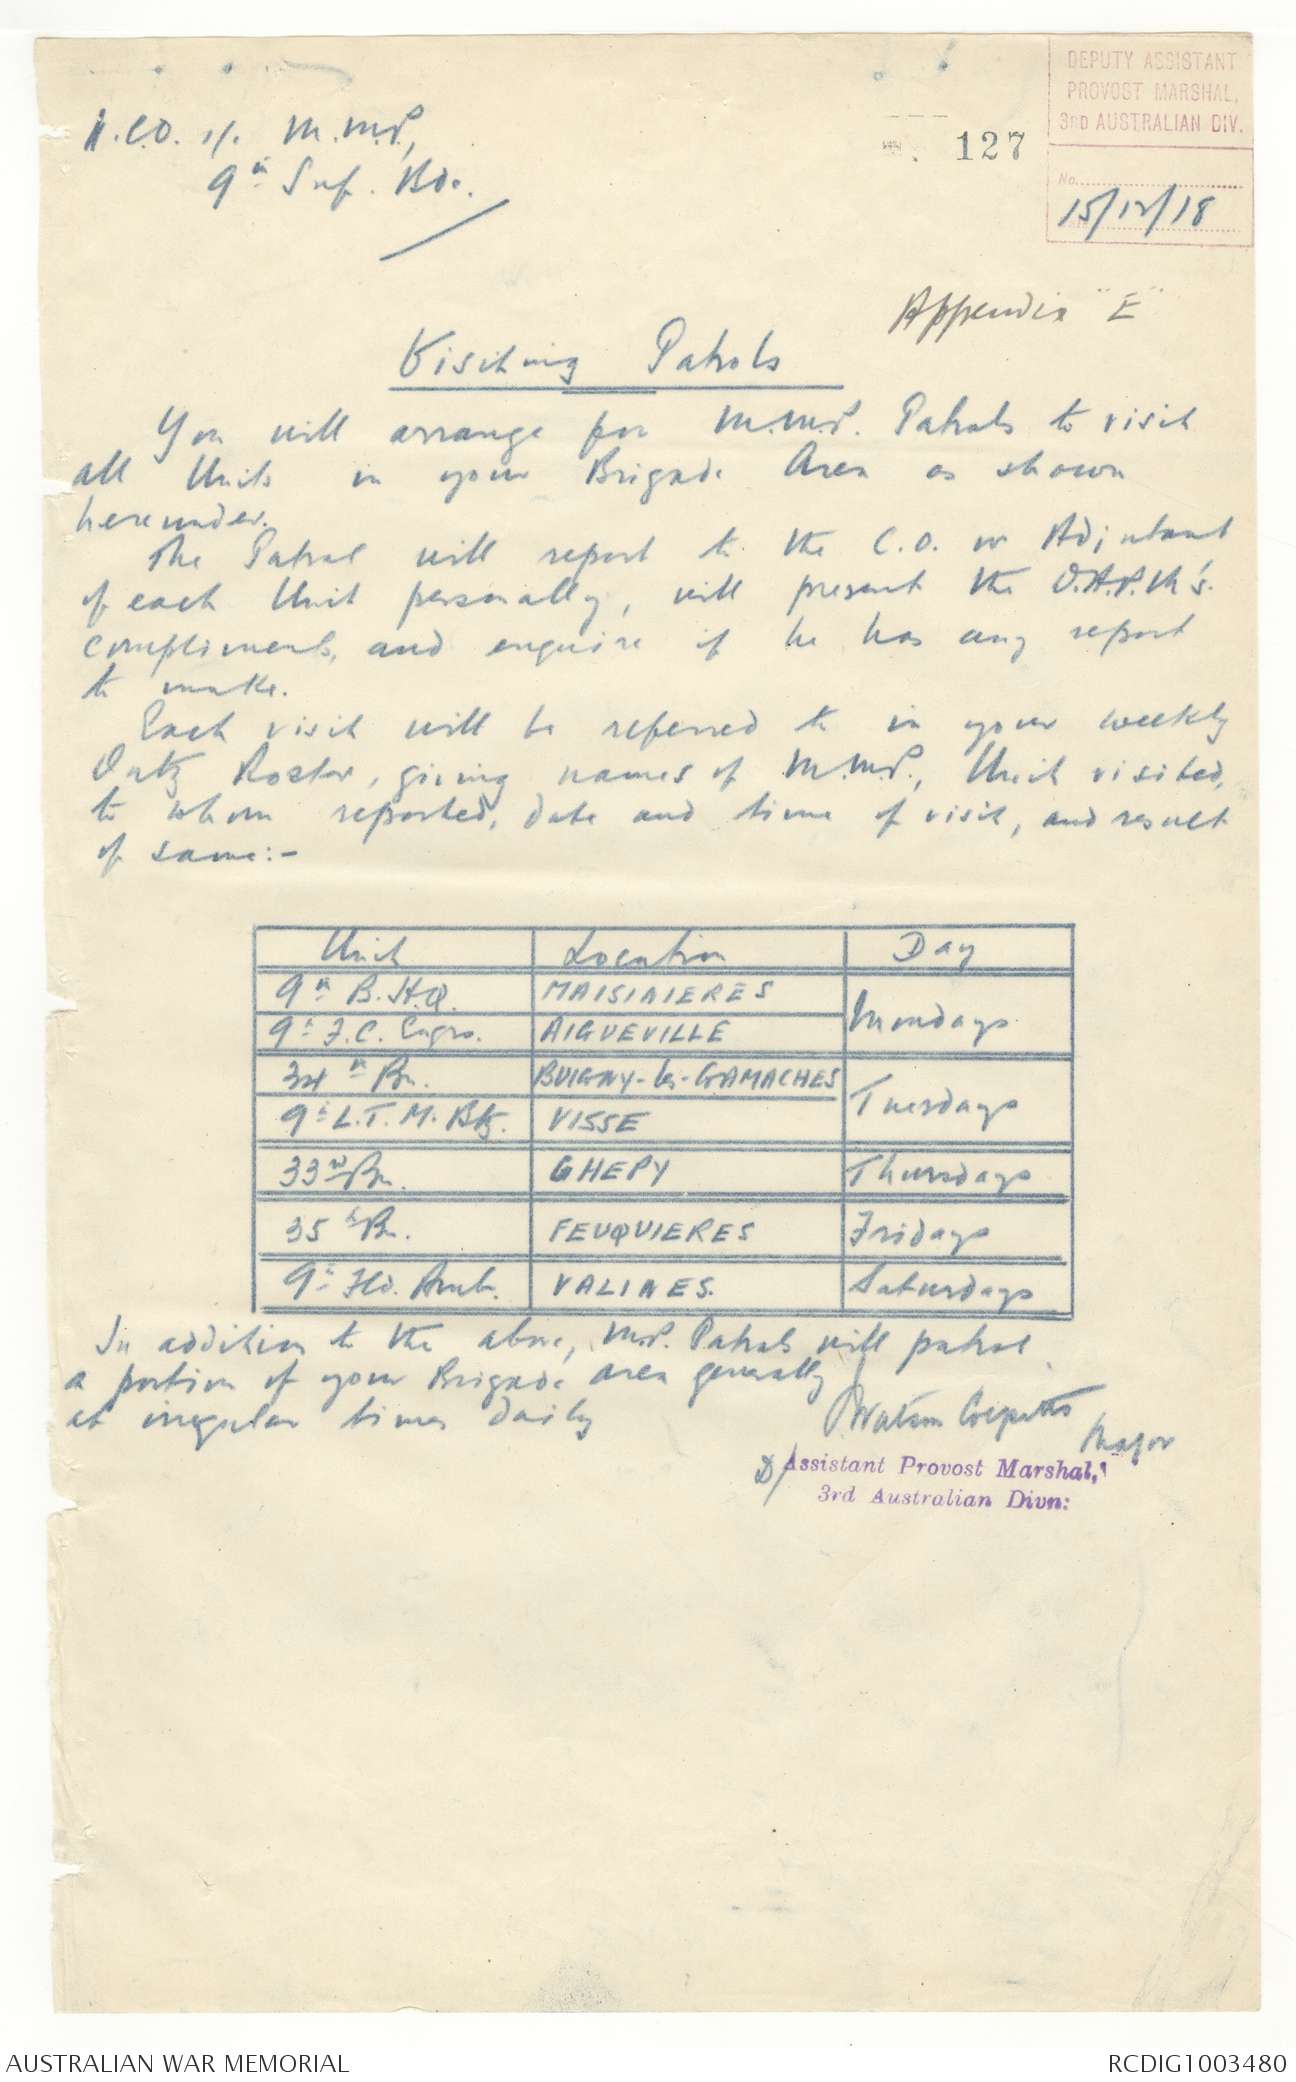 DEPUTY ASSISTANT
PROVOST MARSHAL,
3RD AUSTRALIAN DIV.
No.
15/12/18
127
N.C.O. i/c. M.M.P.,
9th Inf. Bde.
Appendix "E"
Visiting Patrols
You will arrange for M.M.P. Patrols to visit
all Units in your Brigade Area as shown
hereunder.
The Patrol will report to the C.O. or Adjutant
of each Unit personally, will present the D.A.P.M's.
compliments, and enquire if he has any report
to make.
Each visit will be referred to in your weekly
Duty Roster, giving names of M.M.P., Unit visited,
to whom reported, date and time of visit, and result
of same:-
Unit Location Day
9th B.H.Q. MAISINIERES Mondays
9th F.C. Engrs. AIGUEVILLE
34th Bn. BUIGNY-les-GAMACHES Tuesdays
9th L.T.M. Bty. VISSE
33rd Bn. GHEPY Thursdays
35th Bn. FEUQUIERES Fridays
9th Fld. Amb. VALINES. Saturdays
In addition to the above, M.P. Patrols will patrol
a portion of your Brigade area generally
at irregular times daily
Major
D/Assistant Provost Marshal,
3rd Australian Divn:
AUSTRALIAN WAR MEMORIAL
RCDIG1003480